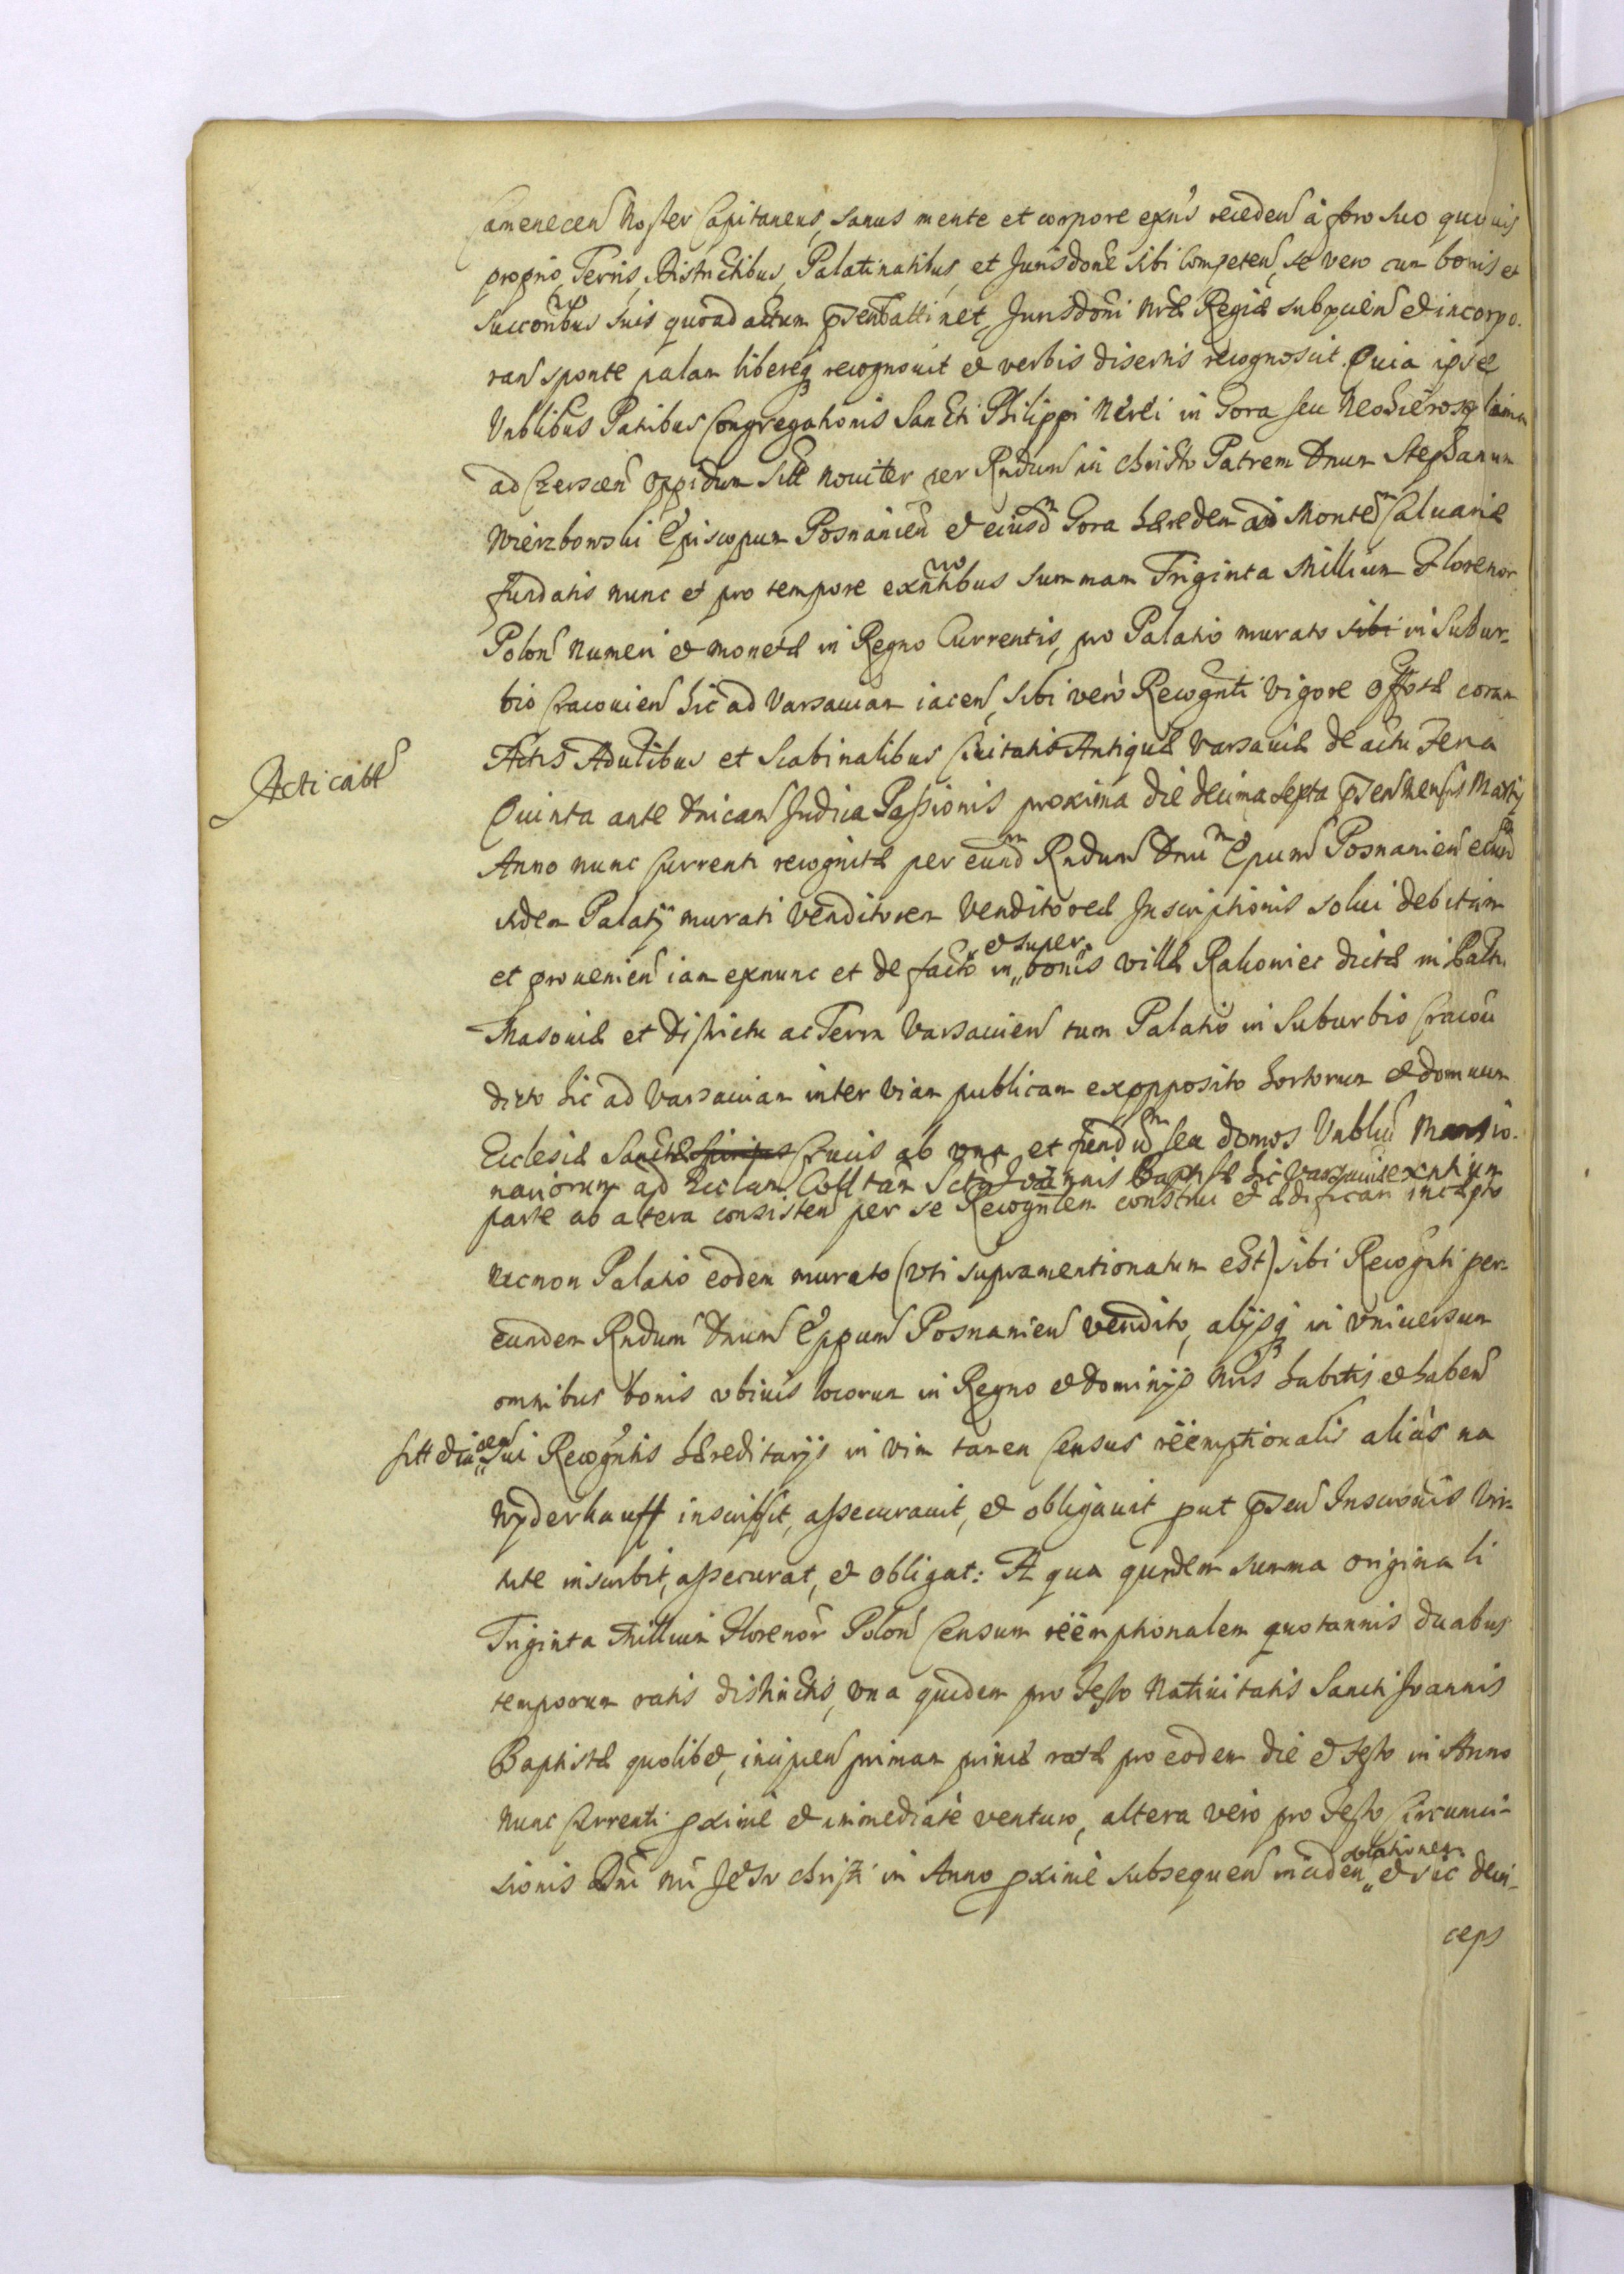 Camenecen Noster Capitaneus, sanus mente et corpore exns recedeñ à foro suo quovis
proprio, Terris, Districtibus, Palatinatibus, et Jurisdone sibi Competeñ, se vero cum bonis et
succoribus suis quoad actum pñseñ attinet, Jurisdoni Nrae Regiae subyicieñ et incorpo-
rañ sponte palam libereq recognovit et verbis disertis recognoscit. Quia ipse
Vnblibus Patribus Congregationis Sancti Philippi Nerei in Gora seu Neohierosolyma
ad Czerscen Oppidum sitt noviter per Rndum in Christo Patrem Dnum Stephanum
Wierzbowski Episcopum Posnanieñ et eiusdm Gora haeredem ad Montem Calvariae
fundatis nunc et pro tempore exntibus summam Triginta Millium Florenor
Poloñ numeri et monetae in Regno Currentis, pro Palatio murato sibi in Subur-
bio Cracovieñ hic ad Varsaviam iaceñ, sibi vero Recognti vigore
Actis Advlibus et Scabinalibus Civitatis Antiquae Varsaviae de actu Feria
Acticatt
Quinta ante Dnicam Judica Passionis proxima die decima sexta pñseñ mensis Martij
Anno nunc Currenti recognitae per eundm Rndum Dnum Epum Posnanieñ eiusd
idem Palatij murati Venditorem Venditoreae Inscriptionis solui debitam
et provenieñ iam exnunc et de facto in „et super„ bonis villae Rakowiec dictae in Paltu
Masoviae et Districtu ac Terra Varsavieñ tum Palatio in Suburbio Cracov
dicto hic ad Varsaviam inter viam publicam ex opposito hortorum et domuum
Ecclesiae Sanctae Spiritus Crucis ab vna et fundum seu domos Vnblium Mansio-
nariorum ad Ecclam Colltam Scti Joannis Baptistae hic Varsaviae exntium
parte ab altera consisteñ per se Recogntem construi et aedificari incaepto
necnon Palatio eodem murato (vti supramentionatum est) sibi Recognti per
eundem Rndum Dnum Eppum Posnanieñ vendito, alijsq in vniversum
omnibus bonis vbivis locorum in Regno et Dominijs Nris habitis et habeñ
sitt et iaceñ „sui Recogntis haereditarijs in vim tamen Census reëmptionalis alias na
Wyderkauff inscripsit, assecuravit, et obligavit put pñseñ Inscronis vir-
tute inscribit, assecurat, et obligat: A qua quidem summa originali
Triginta Millium Florenor Poloñ Censum reëmptionalem quotannis duabus
temporum ratis distinctis, vna quidem pro Festo Nativitatis Sancti Joannis
Baptistae quolibet, incipieñ primam primae ratae pro eodem die et Festo in Anno
nunc Currenti pxime et immediate venturo, altera vero pro Festo Circumci-
sionis Dni Nri Jesu Christi in Anno pxime subsequeñ incideñ „solutionem„ et sic dein-
ceps